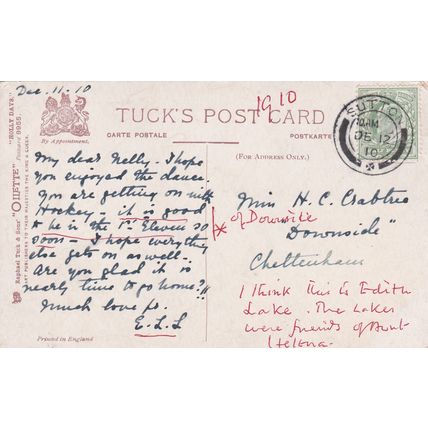 Dec. 11. 10
1910
TUCK'S POST CARD
CARTE POSTALE
POSTKARTE
By Appointment.
(FOR ADDRESS ONLY.)
SUTTON
10AM
DE 12
10
Raphael Tuck & Sons' "OILETTE" Postcard 9955. "HOLLY DAYS."
ART PUBLISHERS TO THEIR MAJESTIES THE KING & QUEEN.
My dear Nelly - I hope
you enjoyed the dance.
You are getting on with
Hockey - it is good
to be in the 1st Eleven so
soon - I hope everything
else gets on as well.
Are you glad it is
nearly time to go home?!!
Much love fr.
E.L.L
Printed in England
Miss H. C. Crabtree
* of Downside
"Downside"
Cheltenham
I think this is Edith
Lake. The Lakes
were friends of Aunt
Helena.